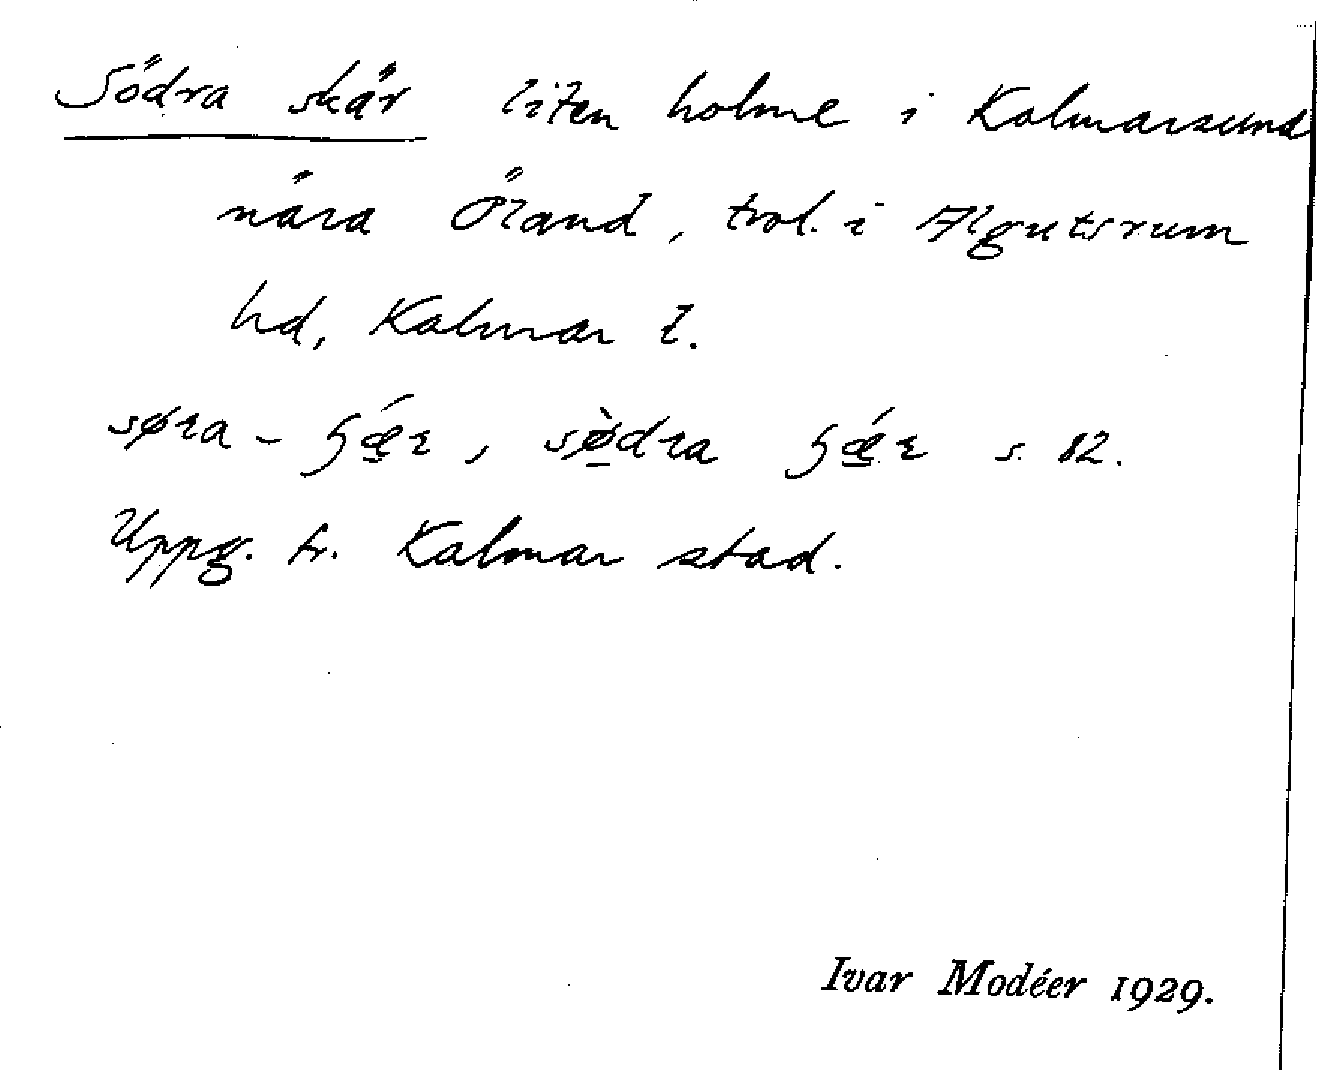 Södra skär liten holme i Kalmarsund
nära Öland, trol. i Algutsrum
hd, Kalmar l.
søra - ɧǽ̱r, sø̱̀dra ɧǽ̱r s. 82.
Uppg. fr. Kalmar stad.
Ivar Modéer 1929.